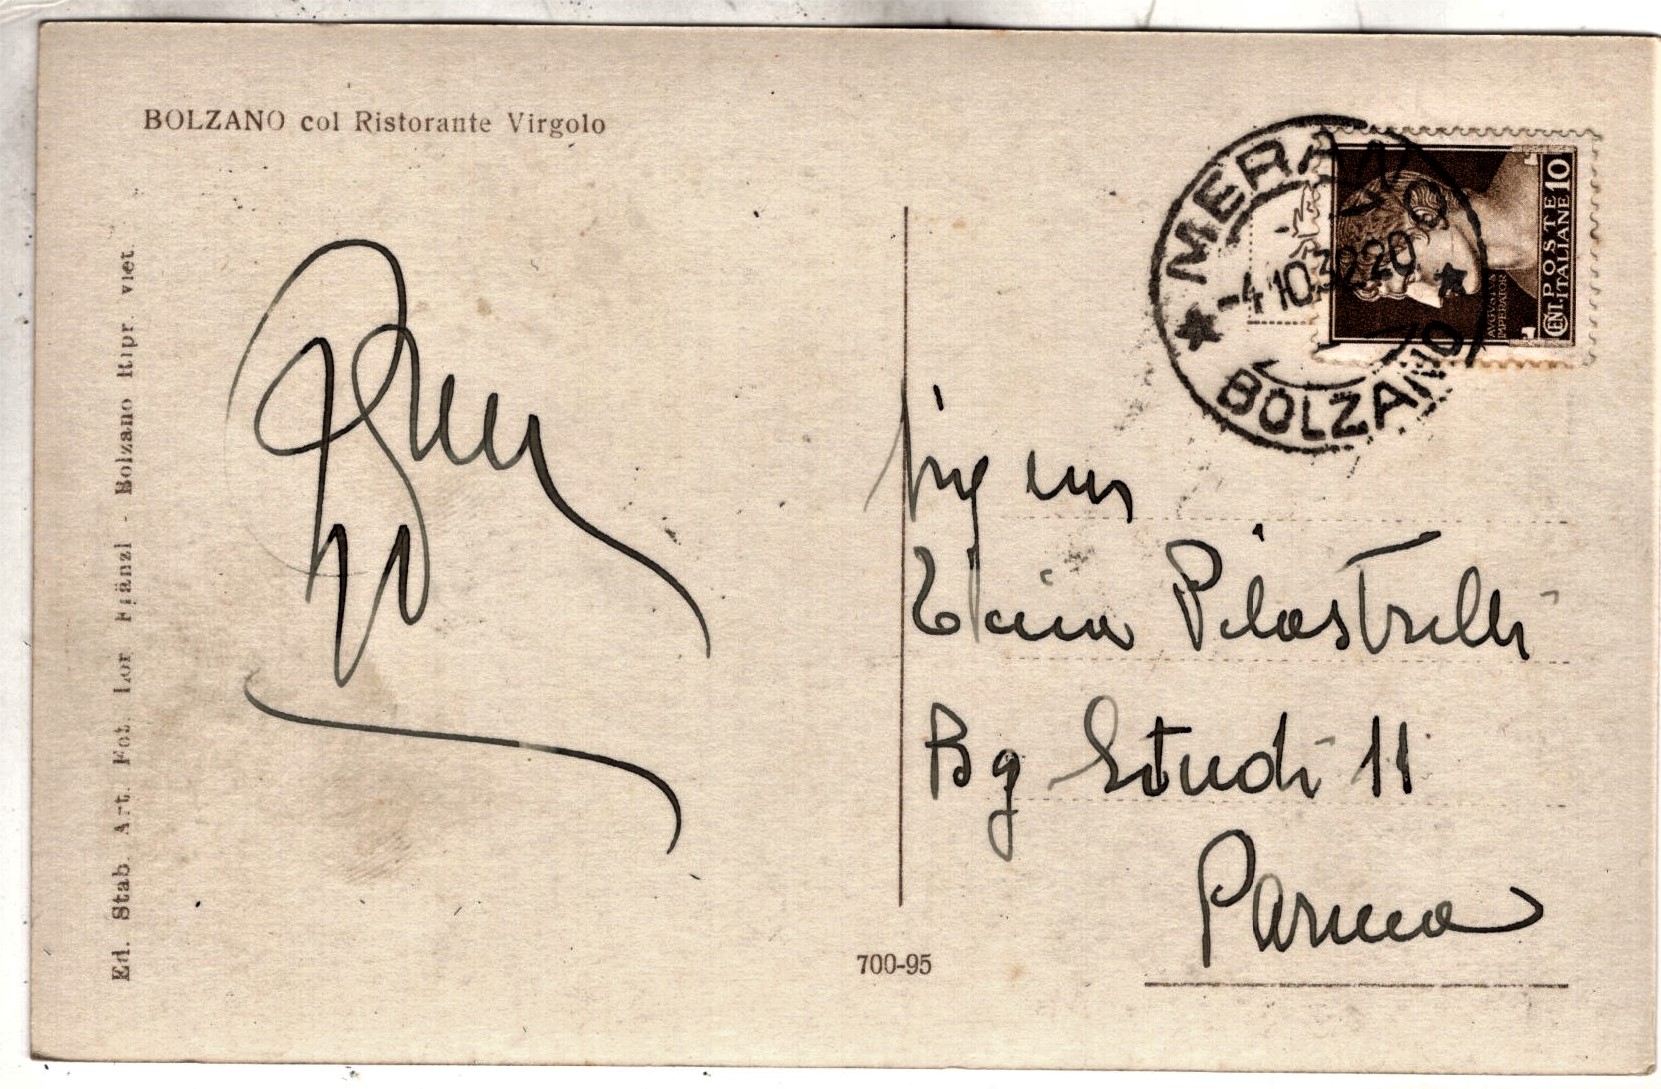 BOLZANO col Ristorante Virgolo
Ed. Stab. Art. Fot. Lor Fränzl - Bolzano Ripr. viet.
MERANO
-4 10 32 20
BOLZANO
CENT. 10
POSTE
ITALIANE
AVGVSTVS
IMPERATOR
Pilastrelli
Bg Studi 11
Parma
700-95